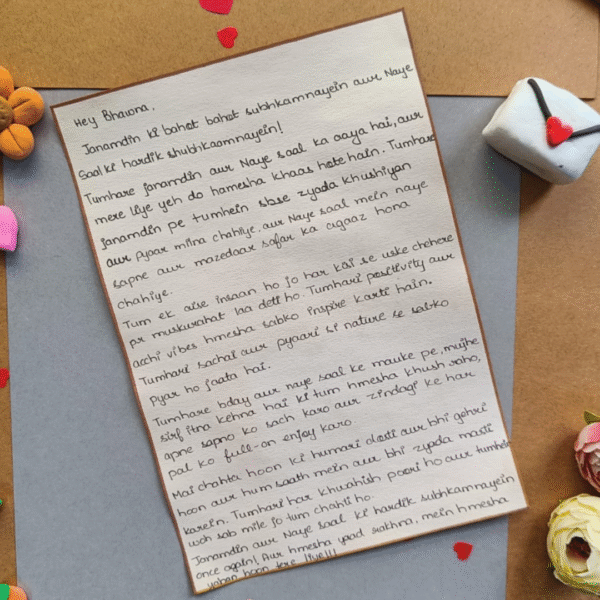 Hey Bhavna,
Janamdin ki bahot bahot subhkamnayein aur Naye
Saal ki hardik shubhkaamnayein!
Tumhare janamdin aur Naye saal ka aaya hai, aur
mere liye yeh do hamesha khaas hote hain. Tumhare
janamdin pe tumhein sbse zyada khushiyan
aur pyaar milna chahiye, aur Naye saal mein naye
sapne aur mazedaar safar ka agaaz hona
chahiye.
Tum ek aise insaan ho jo har kai se uske chehere
pr muskurahat laa deti ho. Tumhari positivity aur
acchi vibes hmesha sabko inspire karti hain.
Tumhari sachai aur pyaari si nature se sabko
pyar ho jaata hai.
Tumhare bday aur naye saal ke mauke pe, mujhe
sirf itna kehna hai ki tum hmesha khush raho,
apne sapno ko sach karo aur zindagi ke har
pal ko full-on enjoy karo
Mai chahta hoon ki humari dosti aur bhi gehri
hoon aur hum saath mein aur bhi zyada masti
karein. Tumhari har khwahish poori ho aur tumhein
woh sab mile jo tum chahti ho.
Janamdin aur Naye Saal ki hardik subhkamnayein
once again! Aur hmesha yaad rakhna, mein hmesha
yahan hoon tere liye!!!